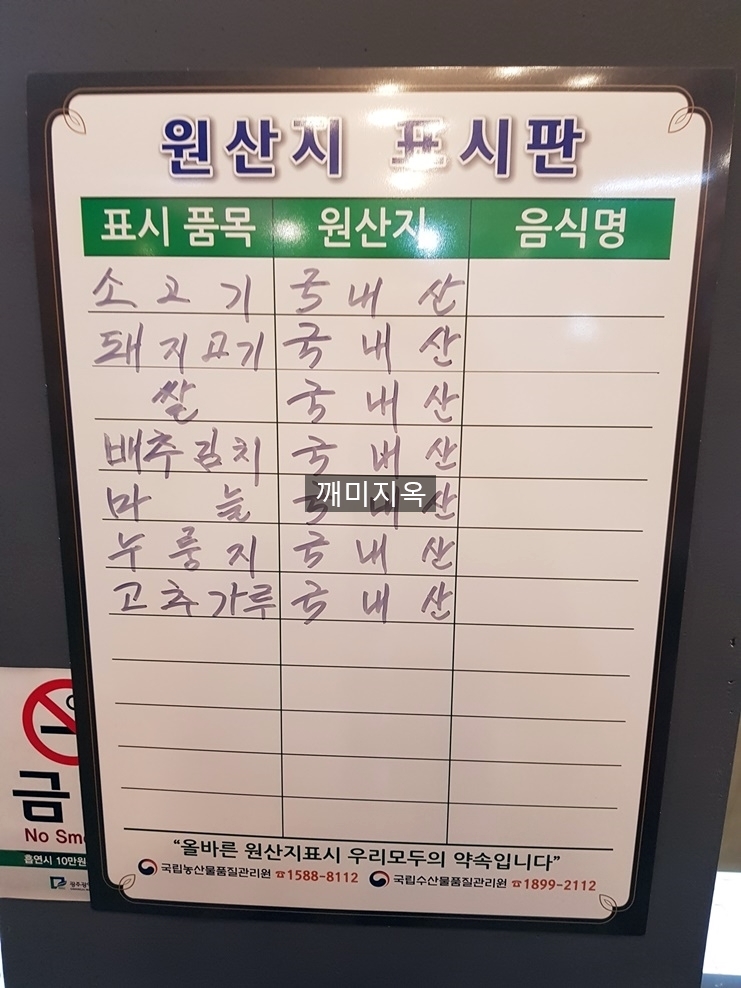 원산지 표시판
표시 품목 원산지 음식명
소고기 국내산
돼지고기 국내산
쌀 국내산
배추김치 국내산
마늘 국내산
깨미지옥
누룽지 국내산
고추가루 국내산
"올바른 원산지표시 우리모두의 약속입니다"
국립농산물품질관리원 ☎1588-8112 국립수산물품질관리원 ☎1899-2112
금
No
흡연시 10만원